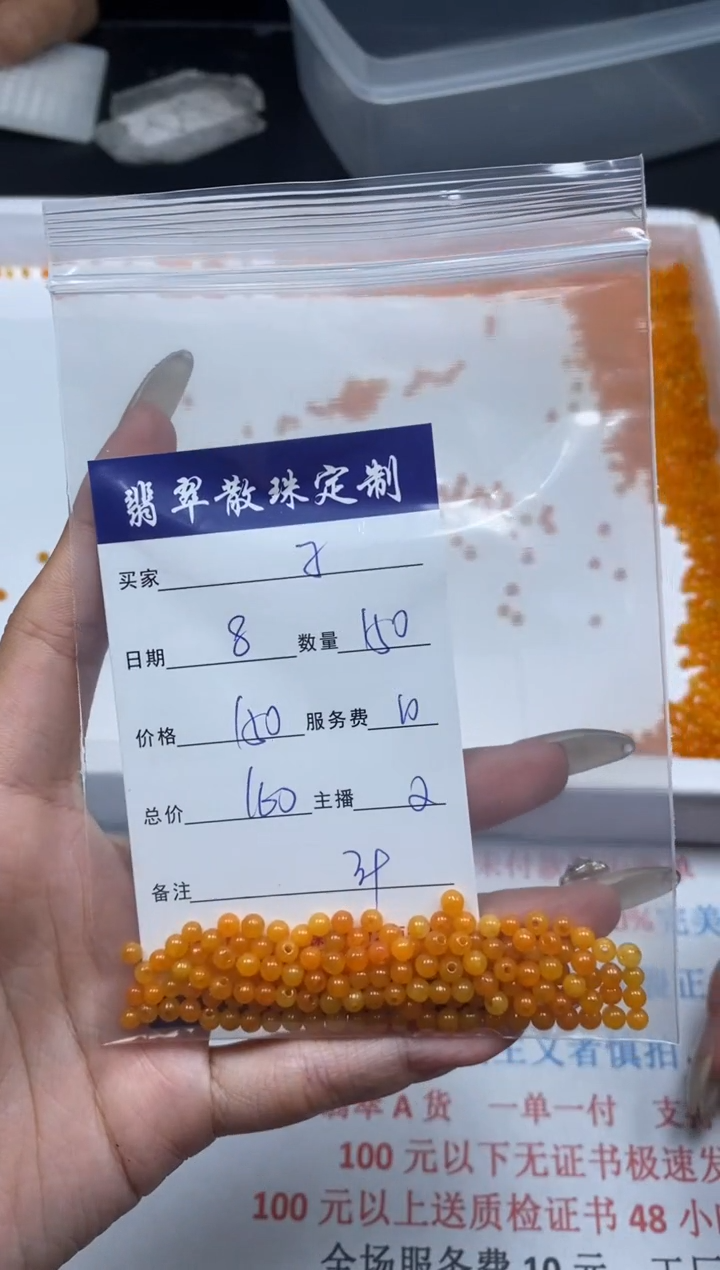 翡翠散珠定制
买家
日期 8 数量 150
价格 150 服务费 10
总价 160 主播 2
备注
%完美
量正
主义者慎拍
翡翠A货 一单一付 支
100元以下无证书极速发
100元以上送质检证书48小
全场服务费10元